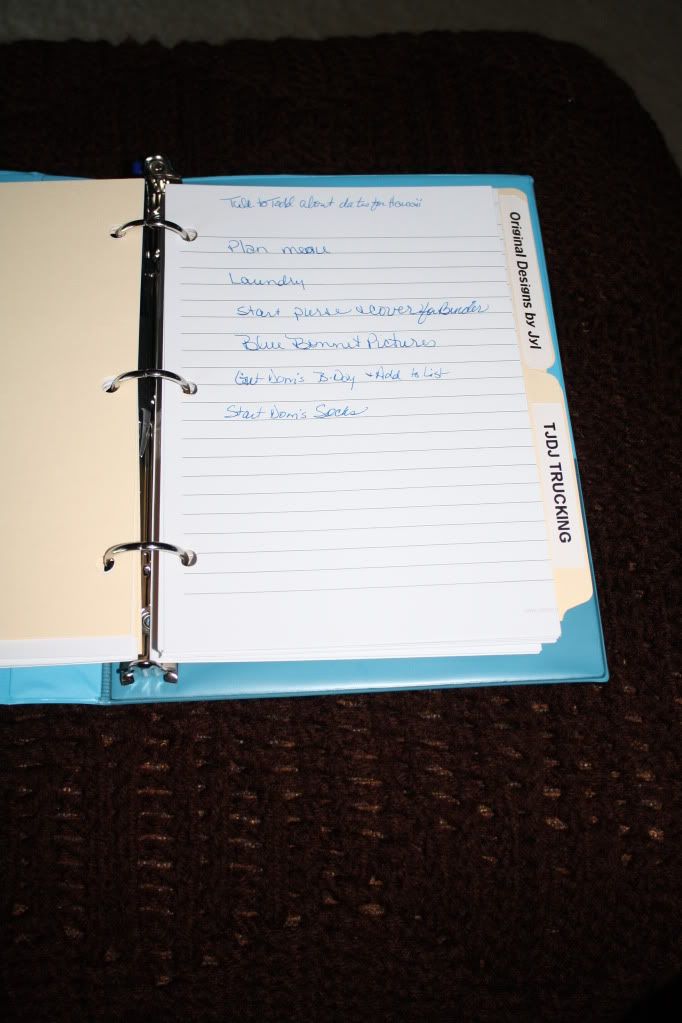 Talk to Todd about dates for Hawaii
Plan menu
Laundry
Start purse & cover for Binder
Blue Bonnet Pictures
Get Dom's B-Day & Add to List
Start Dom's Socks
Original Designs by Jyl
TJDJ TRUCKING